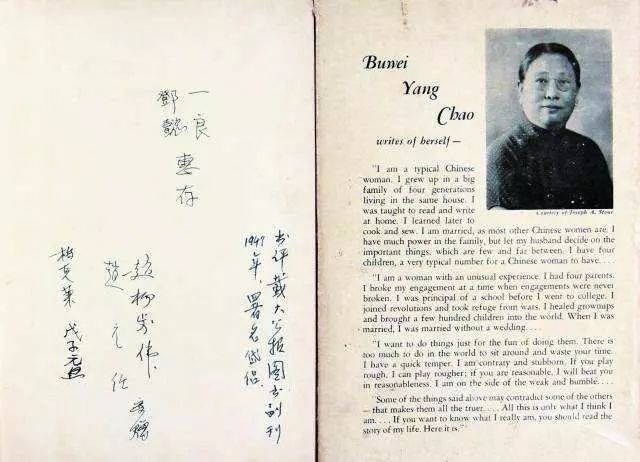 一良
鄧懿
惠存
趙楊步偉
趙元任
柏克萊 戊子元旦
书评載大公报图书副刊
1947年,署名
Buwei
Yang
Chao
writes of herself—
Courtesy of Joseph A. Stone
"I am a typical Chinese
woman. I grew up in a big
family of four generations
living in the same house. I
was taught to read and write
at home. I learned later to
cook and sew. I am married, as most other Chinese women are. I
have much power in the family, but let my husband decide on the
important things, which are few and far between. I have four
children, a very typical number for a Chinese woman to have....
"I am a woman with an unusual experience. I had four parents.
I broke my engagement at a time when engagements were never
broken. I was principal of a school before I went to college. I
joined revolutions and took refuge from wars. I healed grownups
and brought a few hundred children into the world. When I was
married, I was married without a wedding....
"I want to do things just for the fun of doing them. There is
too much to do in the world to sit around and waste your time.
I have a quick temper. I am contraty and stubborn. If you play
rough, I can play rougher; if you are reasonable, I will beat you
in reasonableness. I am on the side of the weak and humble....
"Some of the things said above may contradict some of the others
—that makes them all the truer.... All this is only what I think I
am.... If you want to know what I really am, you should read the
story of my life. Here it is."